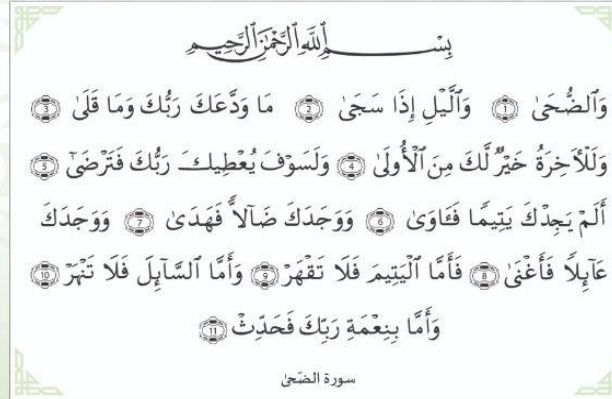 بِسْمِ ٱللَّهِ ٱلرَّحْمَٰنِ ٱلرَّحِيمِ
وَٱلضُّحَىٰ ۝1 وَٱلَّيْلِ إِذَا سَجَىٰ ۝2 مَا وَدَّعَكَ رَبُّكَ وَمَا قَلَىٰ ۝3
وَلَلْأَخِرَةُ خَيْرٌ لَّكَ مِنَ ٱلْأُولَىٰ ۝4 وَلَسَوْفَ يُعْطِيكَ رَبُّكَ فَتَرْضَىٰٓ ۝5
أَلَمْ يَجِدْكَ يَتِيمًا فَـَٔاوَىٰ ۝6 وَوَجَدَكَ ضَآلًّا فَهَدَىٰ ۝7 وَوَجَدَكَ
عَآئِلًا فَأَغْنَىٰ ۝8 فَأَمَّا ٱلْيَتِيمَ فَلَا تَقْهَرْ ۝9 وَأَمَّا ٱلسَّآئِلَ فَلَا تَنْهَرْ ۝10
وَأَمَّا بِنِعْمَةِ رَبِّكَ فَحَدِّثْ ۝11
سورة الضّحىٰ